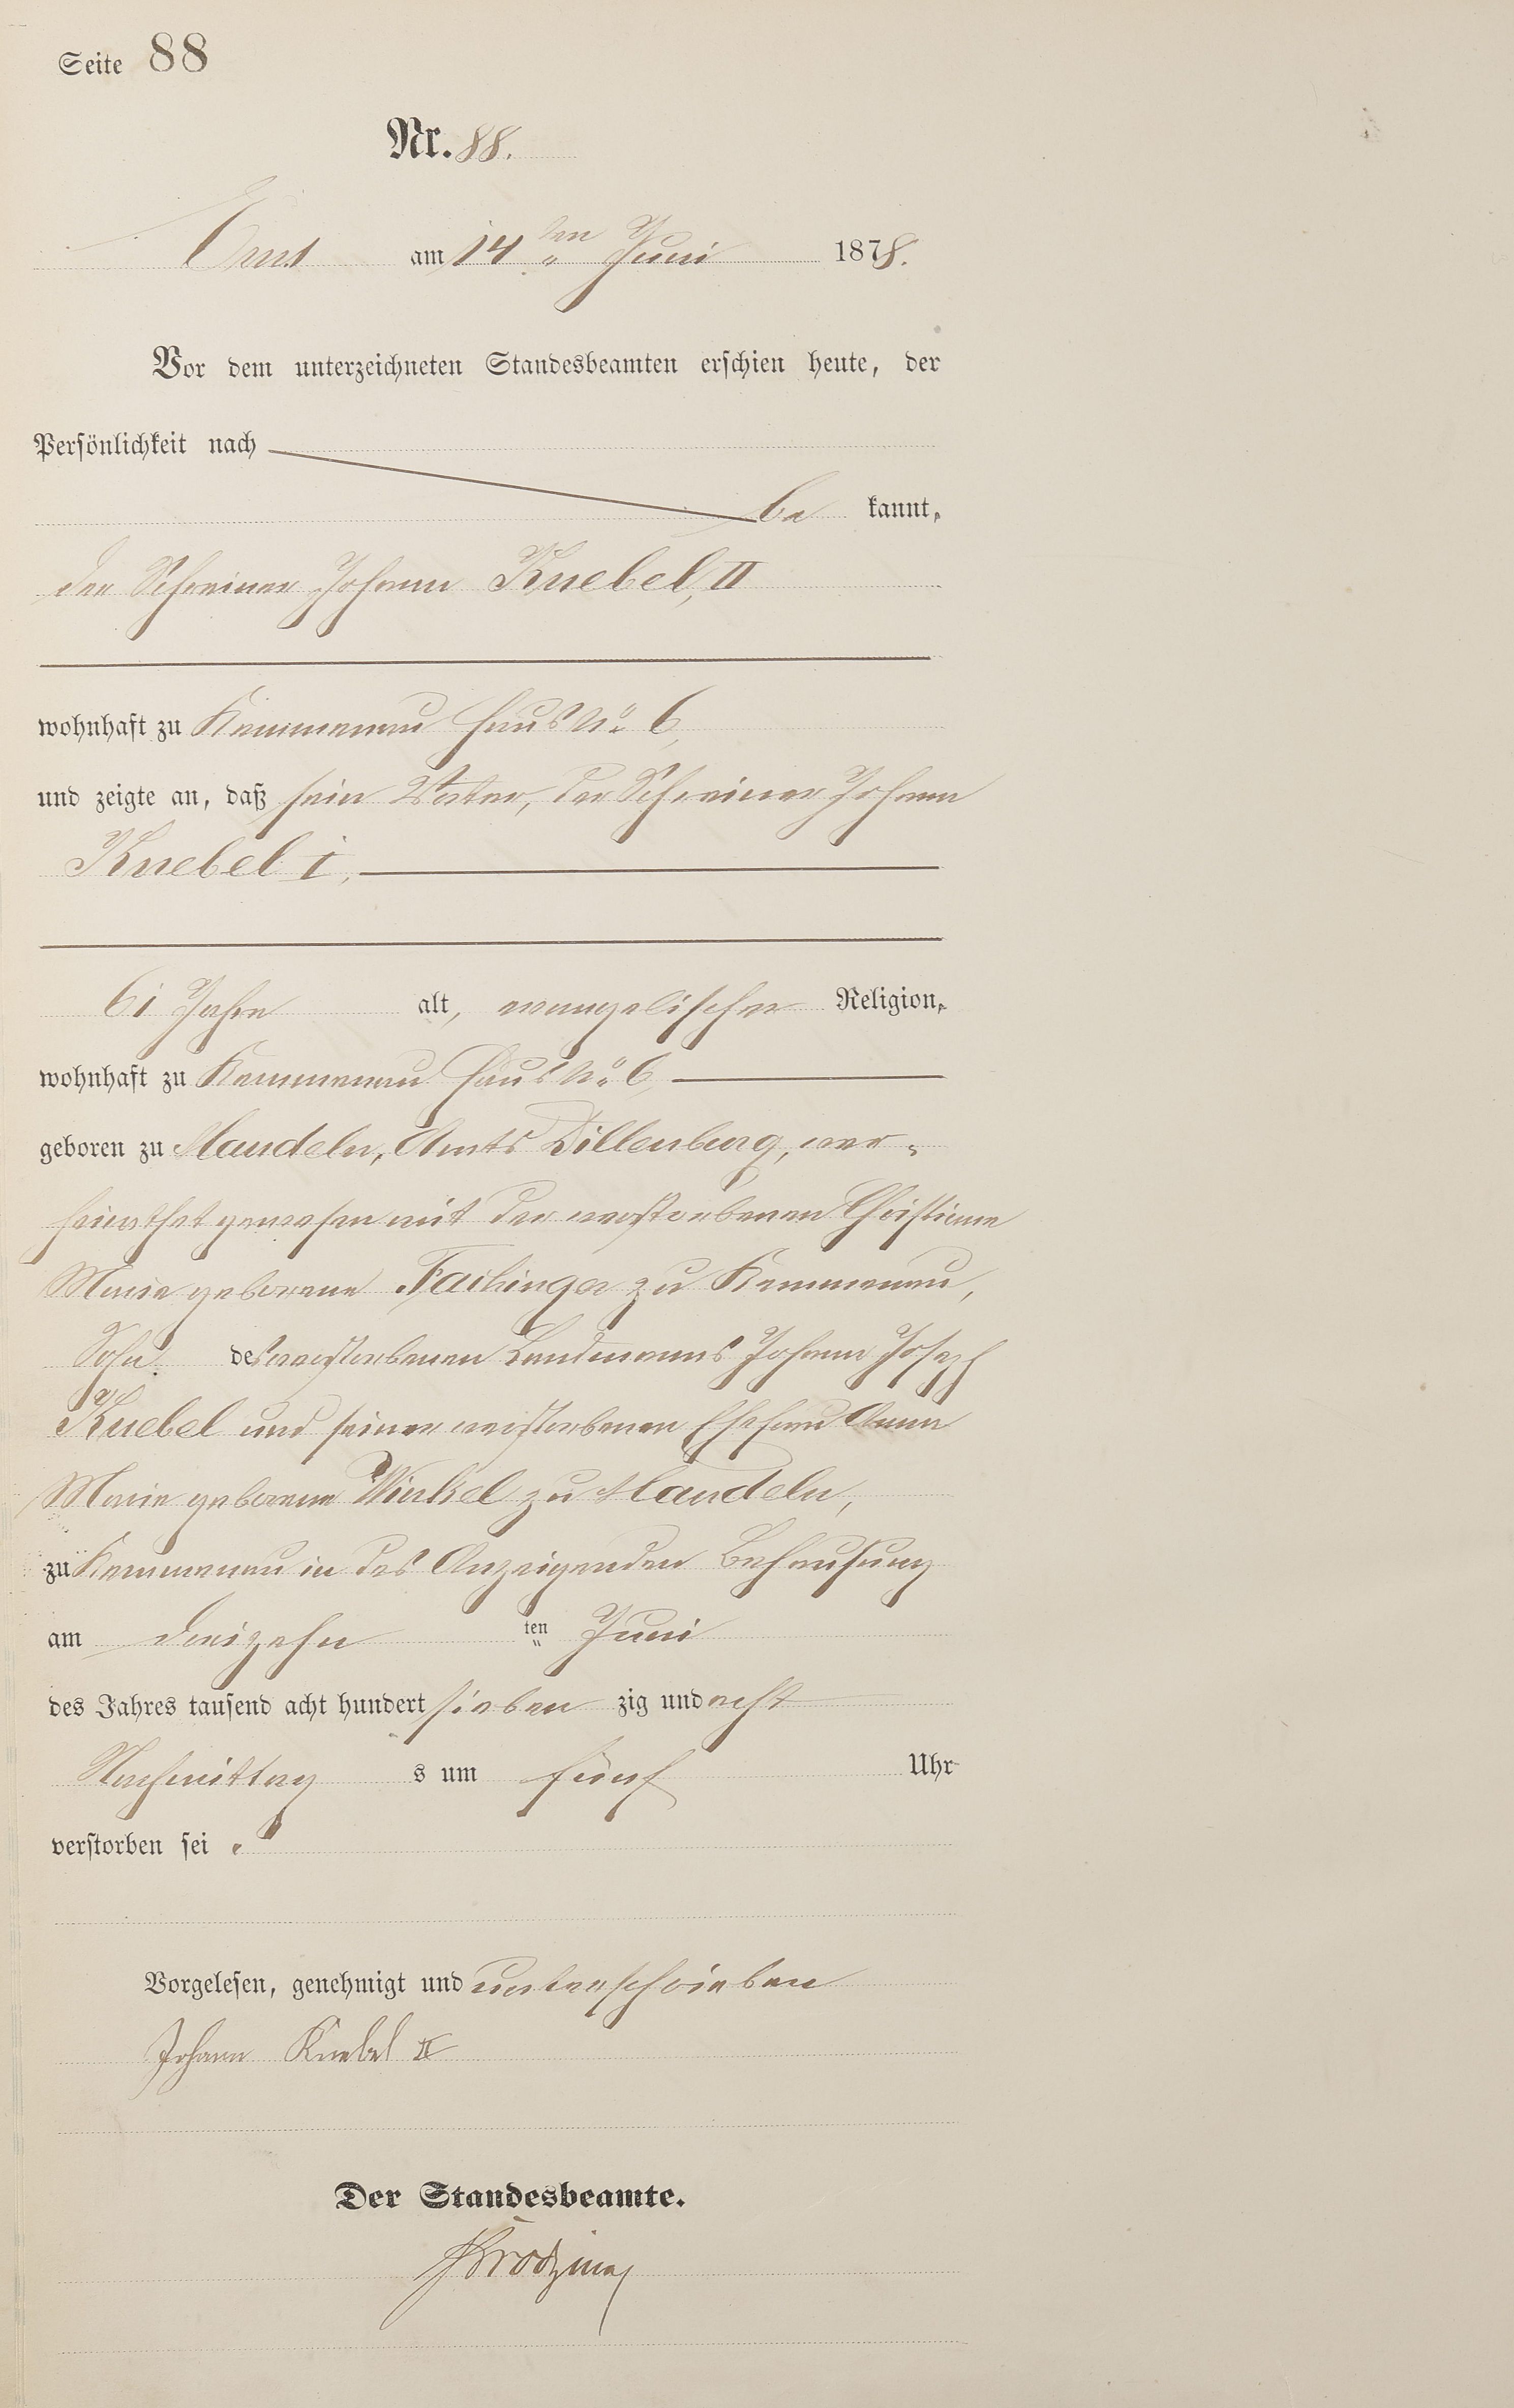 Seite 88
Nr. 88.
Ems am 14ten Juni 1878.
Vor dem unterzeichneten Standesbeamten erschien heute, der
Persönlichkeit nach
be kannt,
der Schreiner Johann Knebel, II
wohnhaft zu Kemmenau Haus No 6,
und zeigte an, daß sein Vater, der Schreiner Johann
Knebel I,
61 Jahre alt, evangelischer Religion,
wohnhaft zu Kemmenau Haus No 6,
geboren zu Mandeln, Amts Dillenburg, ver-
heirathet gewesen mit der verstorbenen Christiane
Marie geborene Faihinger zu Kemmenau,
Sohn des verstorbenen Landmanns Johann Joseph
Knebel und seiner verstorbenen Ehefrau Anna
Marie geborene Winkel zu Mandeln,
zu Kemmenau in des Anzeigenden Behausung
am dreizehn ten Juni
des Jahres tausend acht hundert sieben zig und acht
Nachmittag s um fünf Uhr
verstorben sei.
Vorgelesen, genehmigt und unterschrieben
Johann Knebel II
Der Standesbeamte.